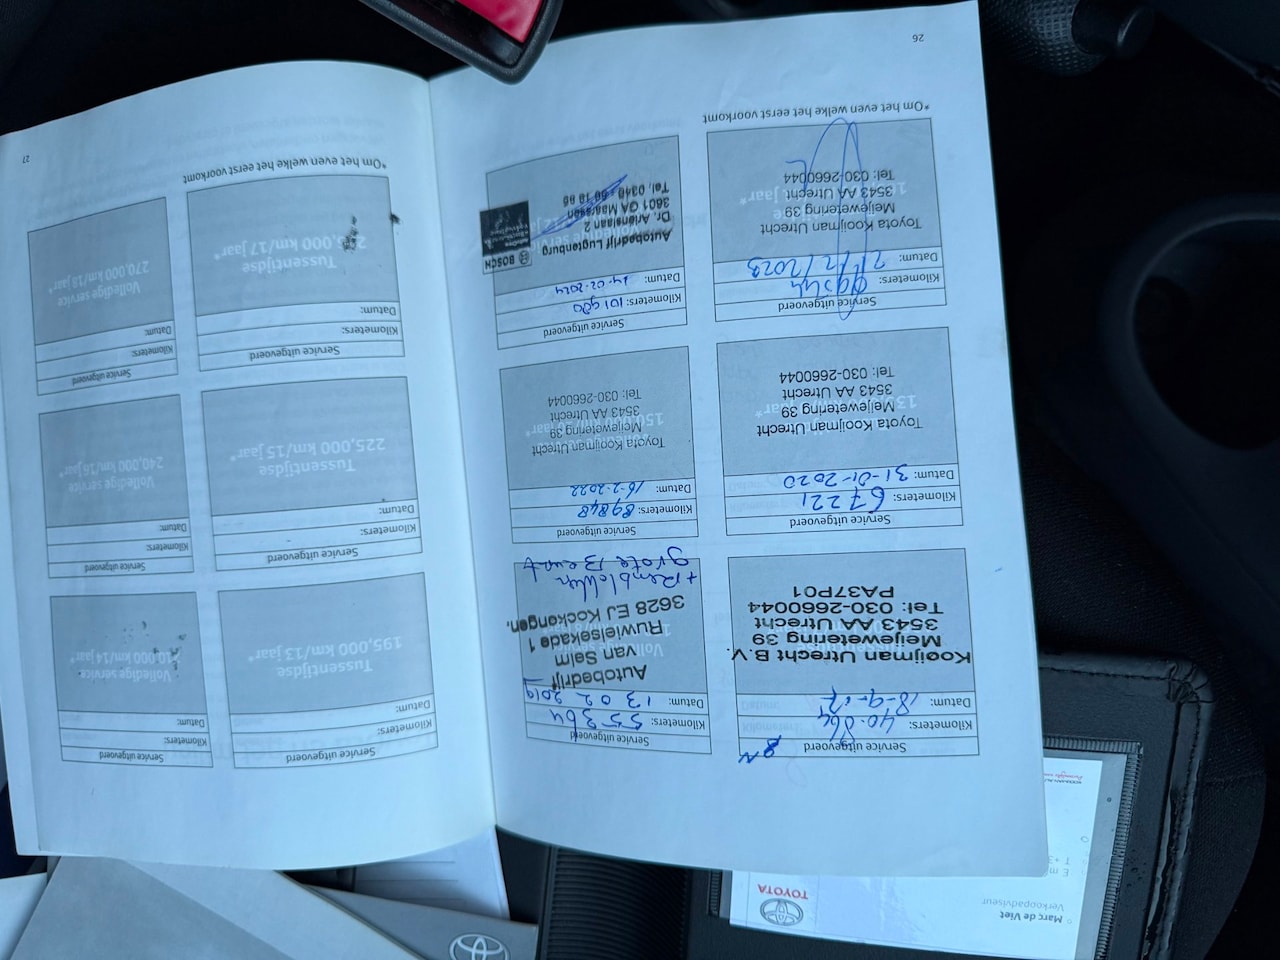 Service uitgevoerd
Kilometers: 40.864
Datum: 18-9-17
Kooijman Utrecht B.V.
Meijewetering 39
3543 AA Utrecht
Tel: 030-2660044
PA37P01
Service uitgevoerd
Kilometers: 55364
Datum: 13 02 2019
Autobedrijf
van Selm
Ruwielsekade 1
3628 EJ Kockengen.
+ Remblokken
grote Beurt
Service uitgevoerd
Kilometers: 67221
Datum: 31-01-2020
Toyota Kooijman Utrecht
Meijewetering 39
3543 AA Utrecht
Tel: 030-2660044
Service uitgevoerd
Kilometers: 89848
Datum: 16-2-2022
Toyota Kooijman Utrecht
Meijewetering 39
3543 AA Utrecht
Tel: 030-2660044
Service uitgevoerd
Kilometers:
Datum: 21/2/2023
Toyota Kooijman Utrecht
Meijewetering 39
3543 AA Utrecht
Tel: 030-2660044
Service uitgevoerd
Kilometers: 101900
Datum: 14-02-2024
BOSCH
Autobedrijf Lugtenburg
Dr. Ariënslaan 2
3601 GA Maarssen
Tel. 0346
*Om het even welke het eerst voorkomt
26
Service uitgevoerd
Kilometers:
Datum:
Tussentijdse
195,000 km/13 jaar*
Service uitgevoerd
Kilometers:
Datum:
Volledige service
km/14 jaar*
Service uitgevoerd
Kilometers:
Datum:
Tussentijdse
225,000 km/15 jaar*
Service uitgevoerd
Kilometers:
Datum:
Volledige service
240,000 km/16 jaar*
Service uitgevoerd
Kilometers:
Datum:
Tussentijdse
km/17 jaar*
Service uitgevoerd
Kilometers:
Datum:
Volledige service
270,000 km/18 jaar*
*Om het even welke het eerst voorkomt
27
Marc de Viet
Verkoopadviseur
TOYOTA